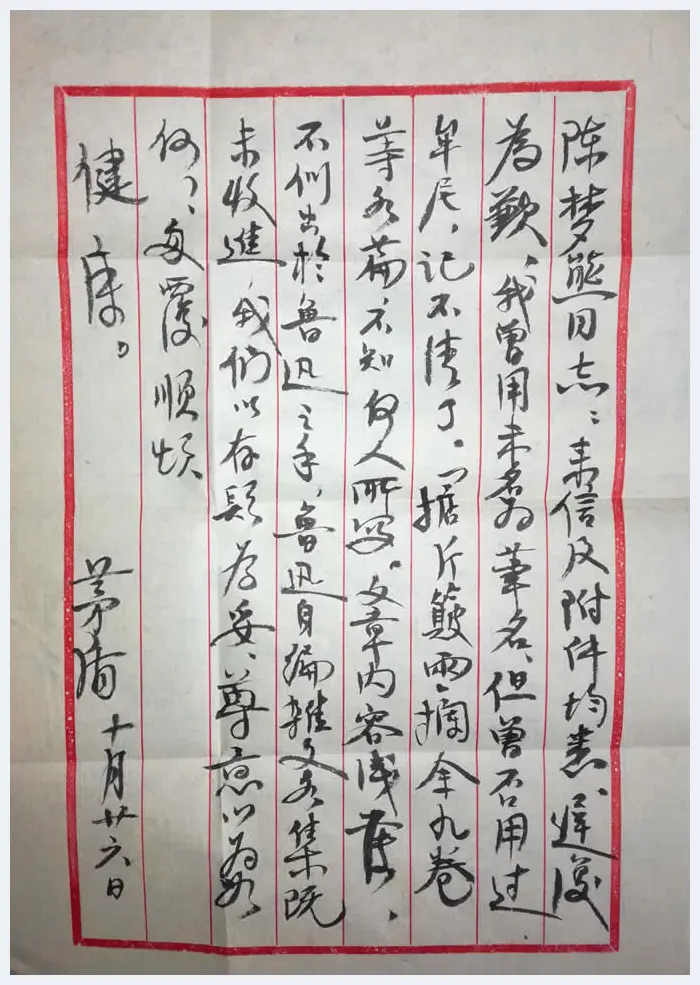 陈梦熊同志：来信及附件均悉，迟复
为歉，我曾用未名为笔名，但曾否用过
牟尼，记不清了。《掂斤簸两》《拥余九卷
等各篇，不知何人所写。文章内容浅薄，
不似出於鲁迅之手，鲁迅自编杂文各集既
未收进，我们以存疑为妥，尊意以为如
何？匆覆顺颂
健康。
茅盾 十月廿六日